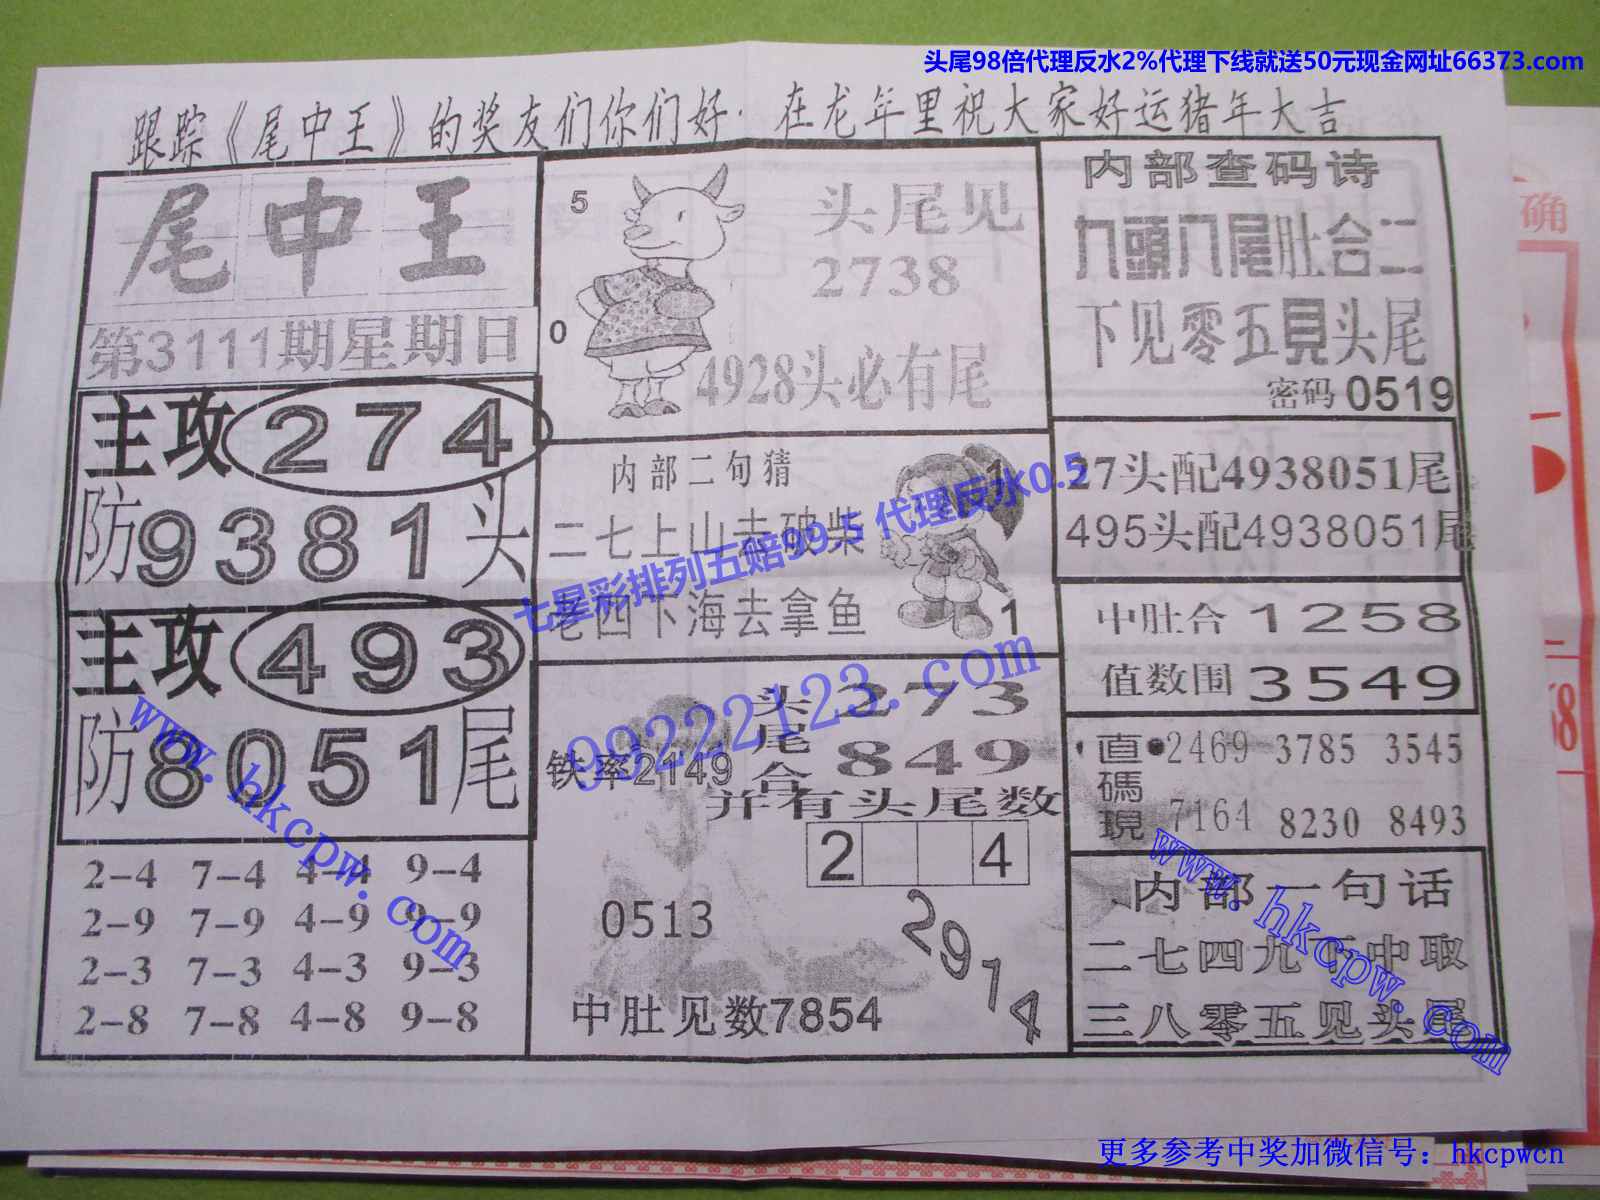 头尾98倍代理反水2%代理下线就送50元现金网址66373.com
跟踪《尾中王》的奖友们你们好·在龙年里祝大家好运猪年大吉
尾中王
第3111期星期日
主攻274
防9381头
主攻493
防8051尾
2-4 7-4 4-4 9-4
2-9 7-9 4-9 9-9
2-3 7-3 4-3 9-3
2-8 7-8 4-8 9-8
5
0
头尾见
2738
4928头必有尾
内部二句猜
二七上山去破柴
老四下海去拿鱼
1
1
七星彩排列五赔99.5 代理反水0.5
99222123.com
铁率2149
头尾合
273
849
并有头尾数
2 4
0513
2974
中肚见数7854
内部查码诗
九頭八尾肚合二
下见零五見头尾
密码0519
27头配4938051尾
495头配4938051尾
中肚合1258
值数围3549
直碼現
2469 3785 3545
7164 8230 8493
内部一句话
二七四九下中取
三八零五见头尾
www.hkcpw.com
www.hkcpw.com
确
更多参考中奖加微信号：hkcpwcn